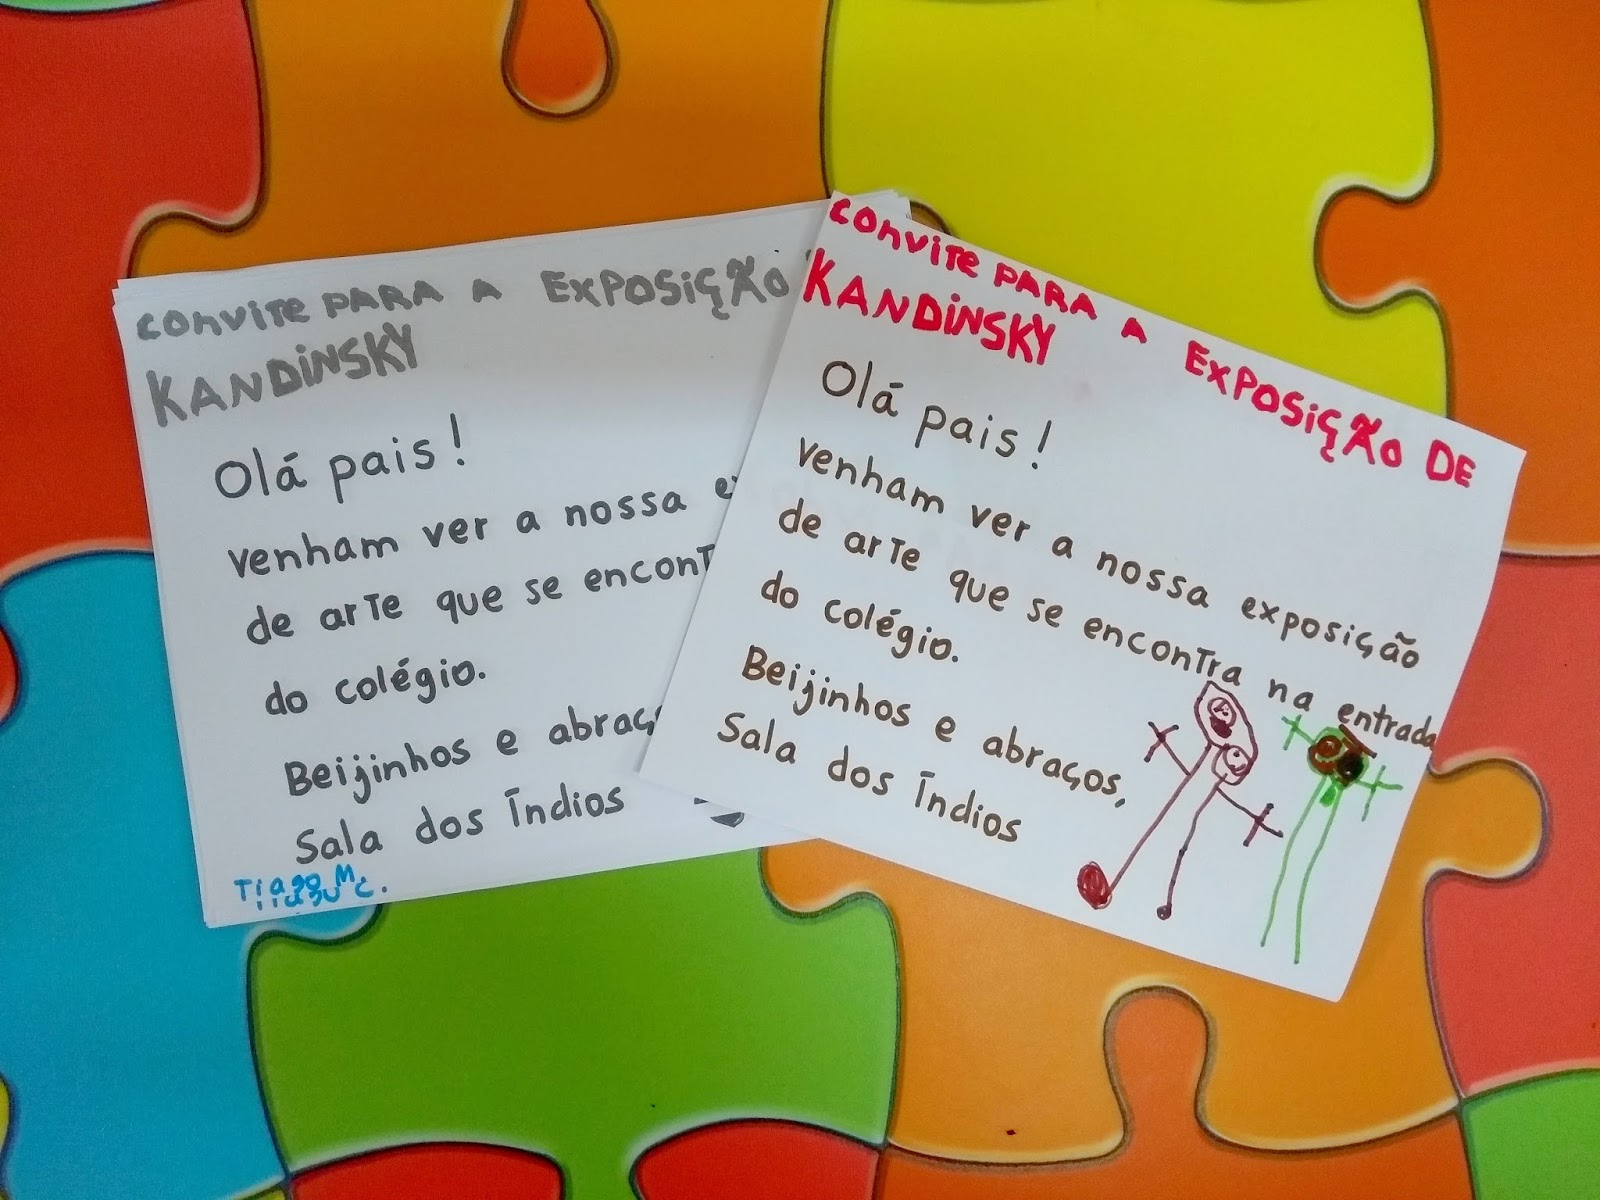 convite PARA A EXPOSIÇÃO
KANDINSKY
Olá pais!
venham ver a nossa
de arte que se encont
do colégio.
Beijinhos e abraç
Sala dos Índios
Tiago M. C.
convite PARA A EXPOSIÇÃO DE
KANDINSKY
Olá pais!
venham ver a nossa exposição
de arte que se encontra na entrada
do colégio.
Beijinhos e abraços,
Sala dos Índios